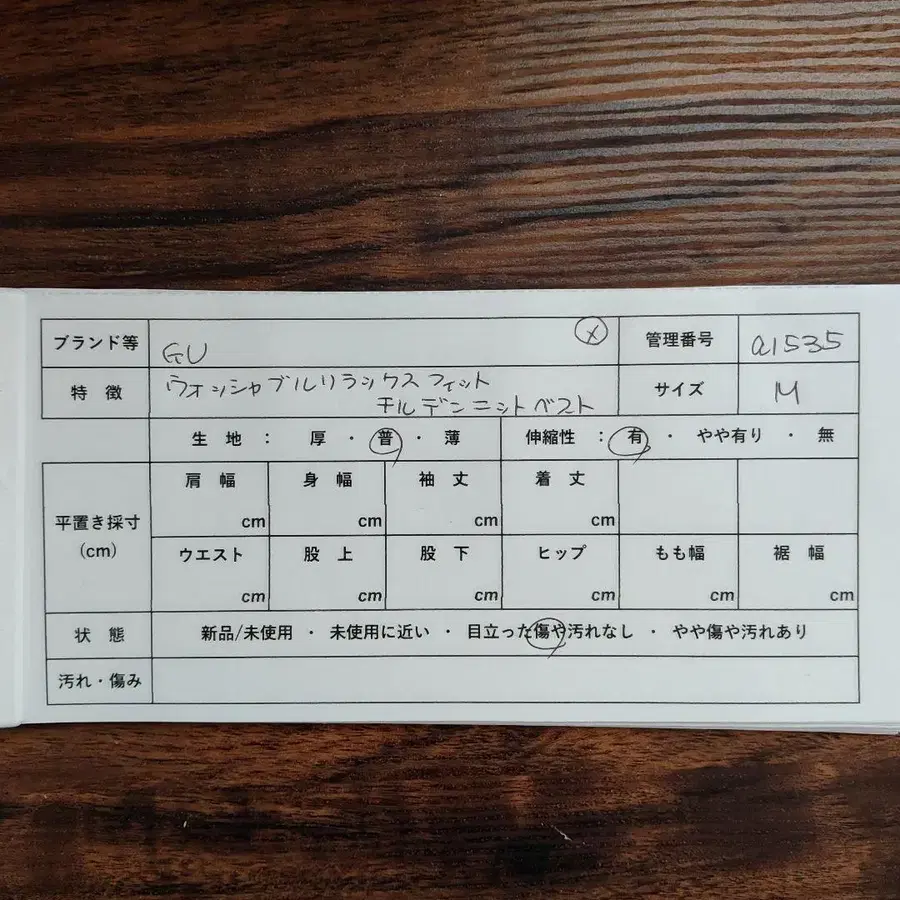 ブランド等 GU X 管理番号 a1535
特徴 ウォッシャブルリラックスフィット サイズ M
チルデンニットベスト
生地 : 厚 ・ 普 ・ 薄 伸縮性 : 有 ・ やや有り ・ 無
平置き採寸
(cm)
肩幅 身幅 袖丈 着丈
cm cm cm cm
ウエスト 股上 股下 ヒップ もも幅 裾幅
cm cm cm cm cm cm
状態 新品/未使用 ・ 未使用に近い ・ 目立った傷や汚れなし ・ やや傷や汚れあり
汚れ・傷み